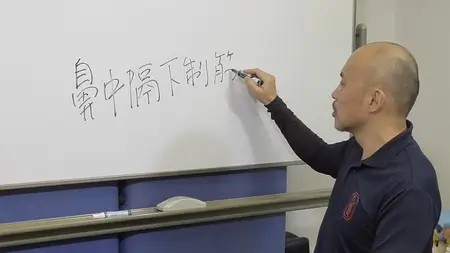 鼻中隔下制筋